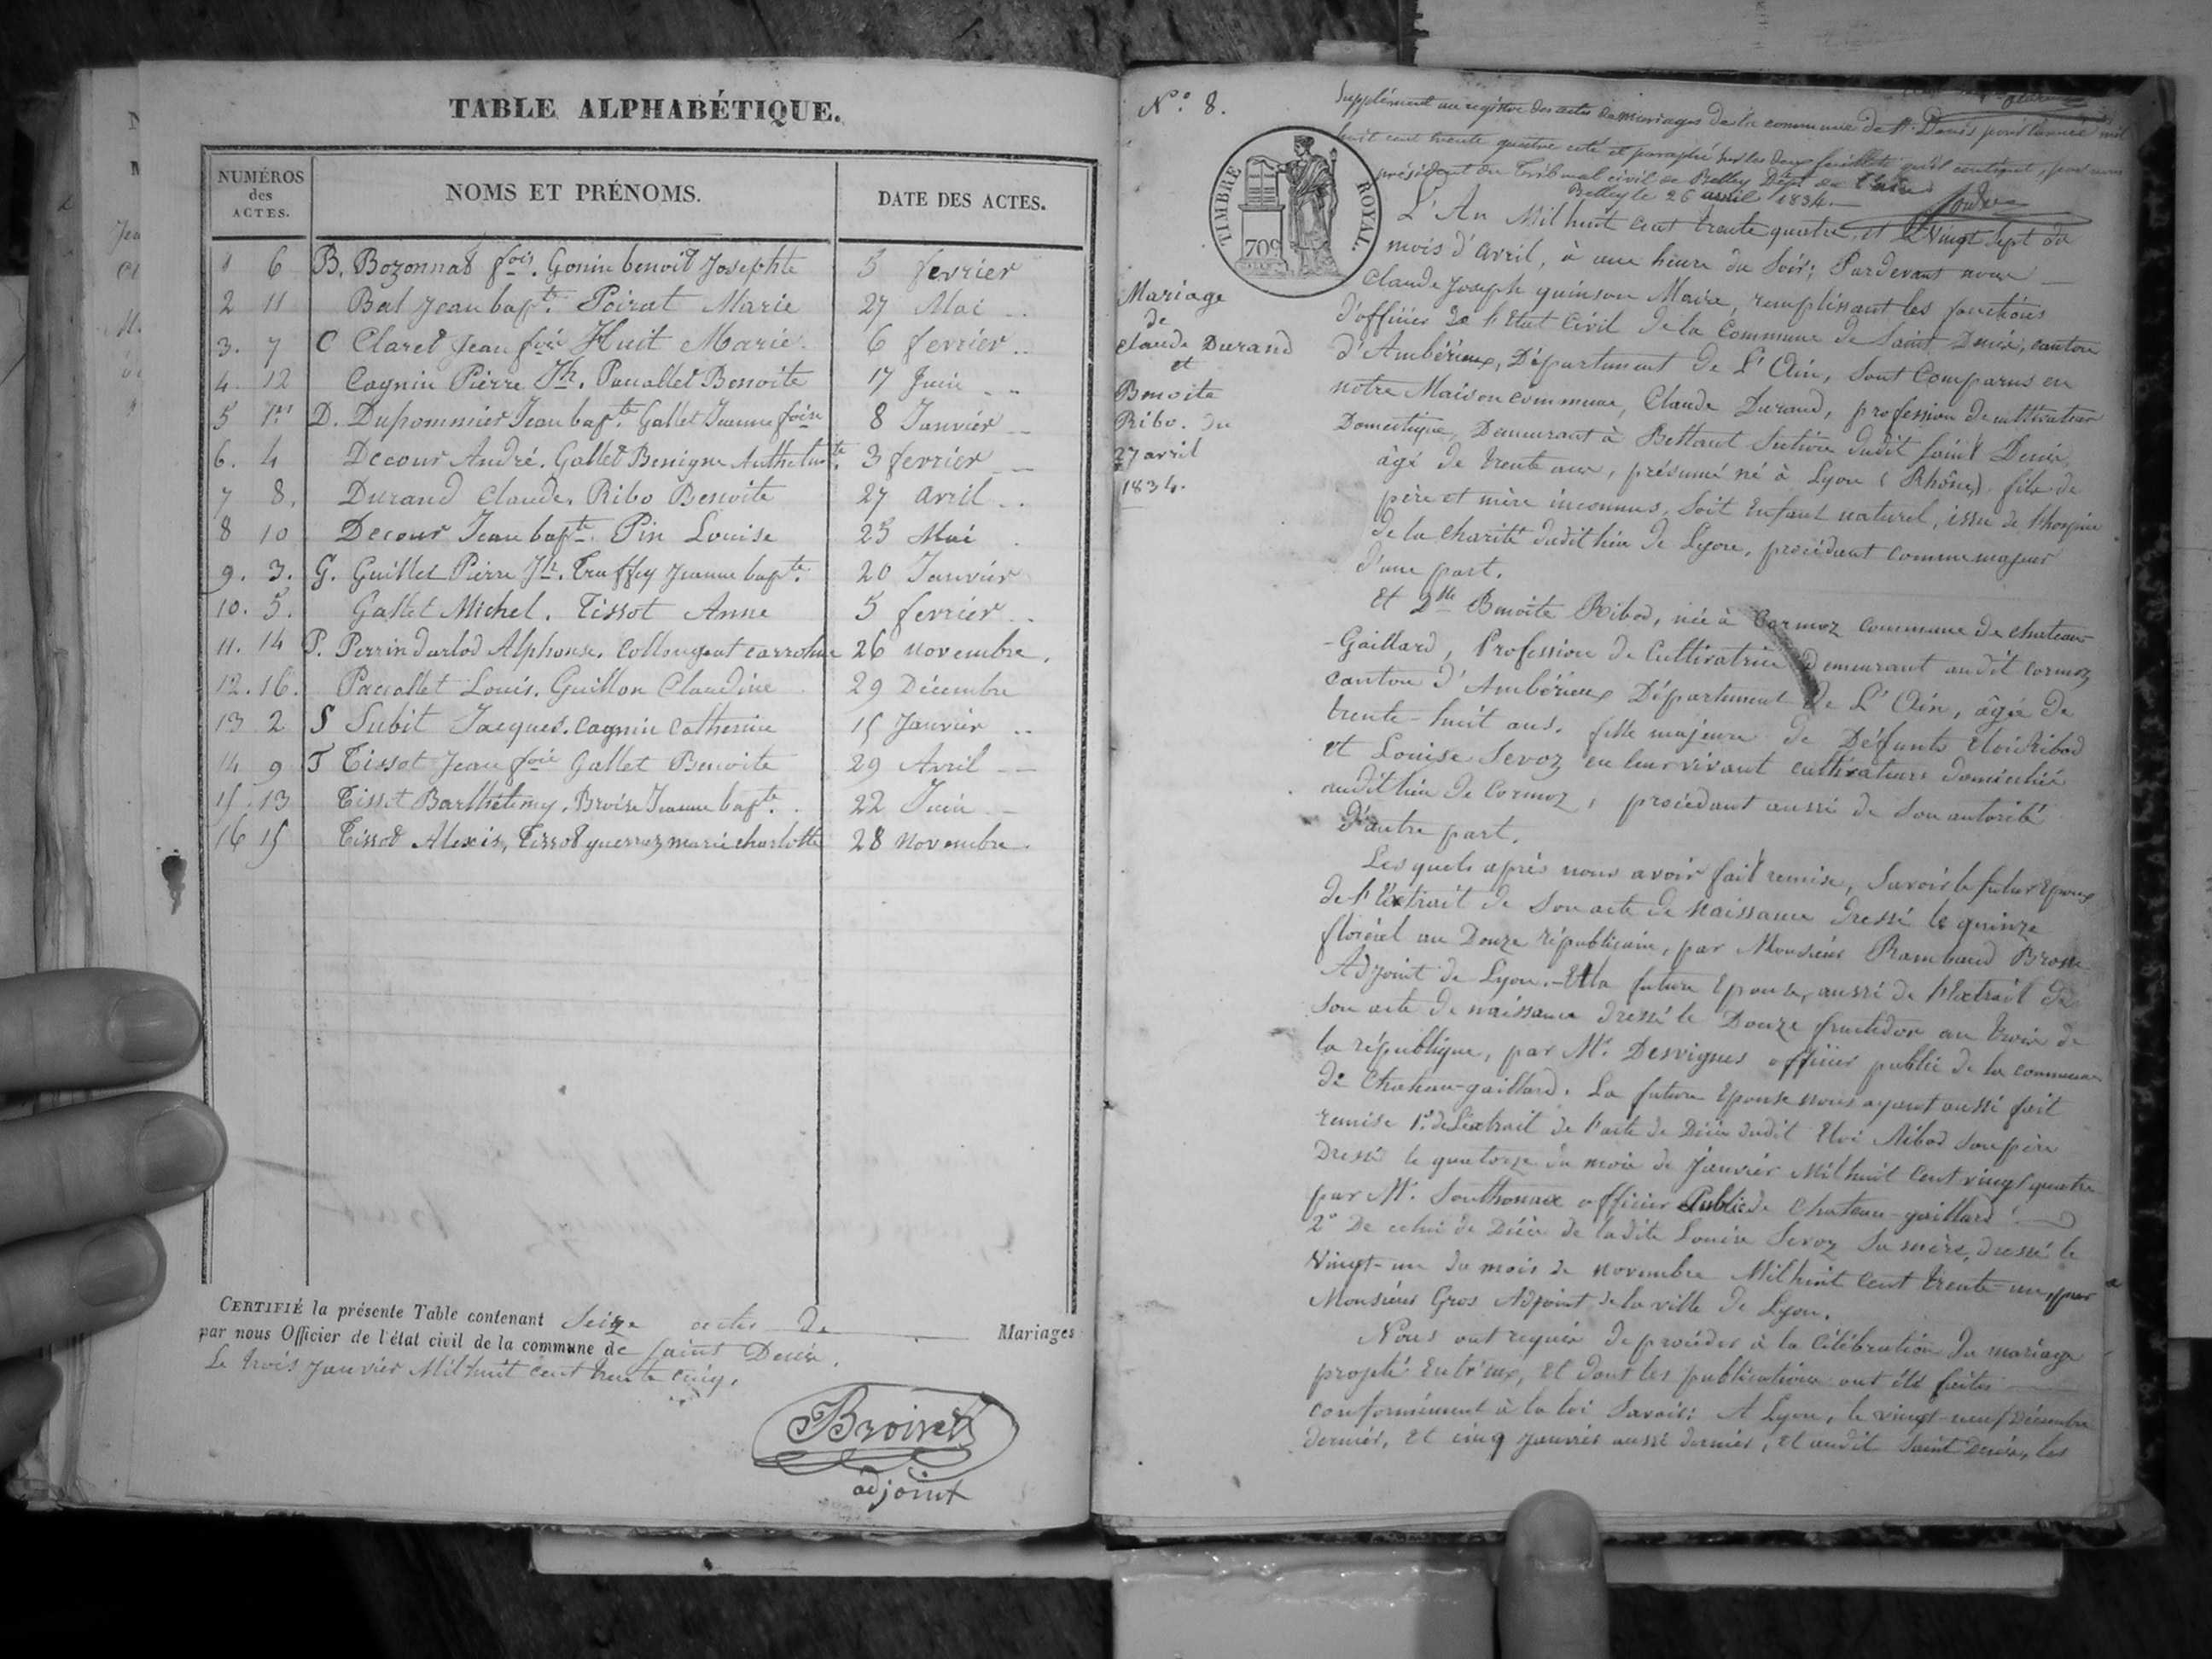 TABLE ALPHABÉTIQUE.
NUMÉROS des ACTES. NOMS ET PRÉNOMS. DATE DES ACTES.
1 6 B. Bozonnat fois. Gonin benoit Josephte 5 fevrier
2 11 Bal Jean bapte. Poirat Marie 27 Mai
3. 7 C Claret Jean fois Huit Marie 6 fevrier
4. 12 Cagnin Pierre Jh. Paccallet Benoite 17 Juin
5 1er D. Dupommier Jean bapte Gallet Jeanne foise 8 Janvier
6. 4 Decour André. Gallet Benigne Anthelmte. 3 fevrier
7 8. Durand Claude. Ribo Benoite 27 avril
8 10 Decour Jean bapte Pin Louise 25 Mai
9. 3. G. Guillet Pierre Jh. Truffey Jeanne bapte. 20 Janvier
10. 5. Gallet Michel. Tissot Anne 5 fevrier
11. 14 P. Perrin Alphonse. 26 novembre.
12. 16. Paccallet Louis. Guillon Claudine 29 Décembre
13 2 S Subit Jacques. Cagnin Catherine 15 Janvier
14 9 T Tissot Jean fois Gallet Benoite 29 Avril
15 13 Tissot Barthélemy. Jeanne bapte. 22 Juin
16 15 Tissot Alexis, Tissot guerraz marie charlotte 28 Novembre.
CERTIFIÉ la présente Table contenant Seize actes de Mariages
par nous Officier de l'état civil de la commune de Saint Denis.
Le trois Janvier Mil huit cent trente cinq.
adjoint
N° 8.
Supplément au registre des actes de mariages de la commune de St. Denis pour l'année mil
huit cent trente quatre coté et paraphé sur les deux feuillets qu'il contient, par nous
président du Tribunal civil de Belley Dépt. de l'Ain
Belley le 26 avril 1834.
TIMBRE ROYAL.
70c
Mariage
de
Claude Durand
et
Benoite
Ribo. du
27 avril
1834.
L'An Mil huit cent trente quatre, et le Vingt Sept du
mois d'avril, à une heure du Soir; Pardevant nous
Claude Joseph quinson Maire, remplissant les fonctions
d'officier de l'Etat Civil de la Commune de Saint Denis, canton
d'Ambérieux, Département de L'Ain, Sont Comparus en
notre Maison commune, Claude Durand, profession de cultivateur
Domestique, Demeurant à Bettant Section dudit Saint Denis,
âgé de trente ans, présumé né à Lyon (Rhône) fils de
père et mère inconnus, Soit Enfant naturel, issu de l'hospice
de la charité dudit lieu de Lyon, procédant comme majeur
d'une part.
Et Dlle Benoite Ribod, née à Cormoz commune de chateau-
-Gaillard, Profession de Cultivatrice Demeurant audit cormoz
canton d'Ambérieux Département de L'Ain, âgée de
trente-huit ans. fille majeure de Défunts Eloi Ribod
et Louise Sevoz en leur vivant cultivateurs domiciliés
audit lieu de Cormoz, procédant aussi de Son autorité
D'autre part.
Lesquels après nous avoir fait remise, Savoir le futur Epoux
de l'Extrait de Son acte de Naissance dressé le quinze
floréal an Douze républicain, par Monsieur Rambaud
Adjoint de Lyon. Et la future Epouse, aussi de l'Extrait de
Son acte de naissance dressé le Douze fructidor an trois de
la république, par Mr. Desvignes officier public de la commune
de Chateau-gaillard. La future Epouse nous ayant aussi fait
remise 1° de L'extrait de l'acte de Décès dudit Eloi Ribod Son père
Dressé le quatorze du mois de Janvier Mil huit Cent vingt quatre
par Mr. Southonnax officier Public de Chateau-gaillard.
2° De celui de Décès de ladite Louise Sevoz Sa mère, dressé le
Vingt-un du mois de novembre Mil huit Cent trente-un, par
Monsieur Gros Adjoint de la ville de Lyon.
Nous ont requis de procéder à la Célébration du mariage
projeté Entr'eux, Et dont les publications ont été faites
conformément à la loi Savoir: A Lyon, le vingt-neuf Décembre
dernier, Et cinq Janvier aussi dernier, Et audit Saint Denis, les